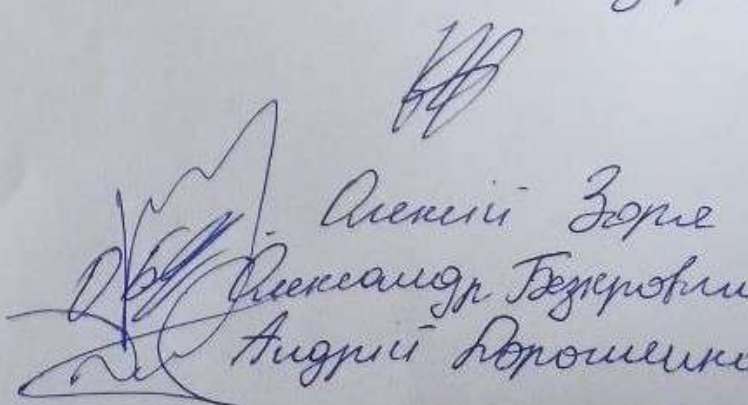 Олексій Зоря
Олександр Безкровни
Андрій Дорошенко